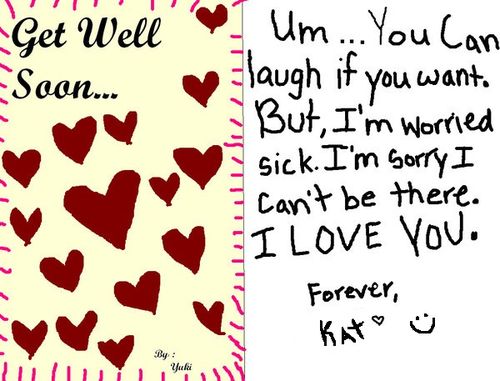 Get Well
Soon...
By :
Yuki
Um...You Can
laugh if you want.
But, I'm worried
sick. I'm sorry I
can't be there.
I LOVE YOU.
Forever,
KAT